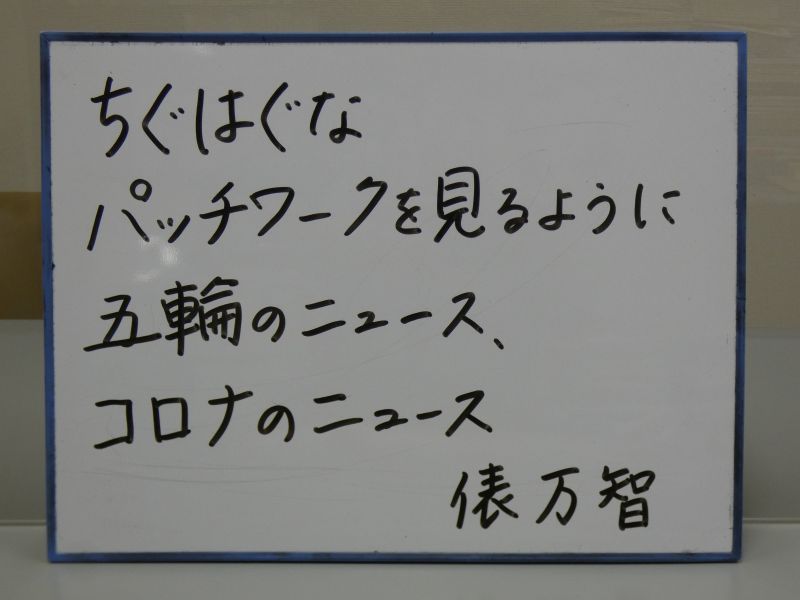 ちぐはぐな
パッチワークを見るように
五輪のニュース、
コロナのニュース
俵万智